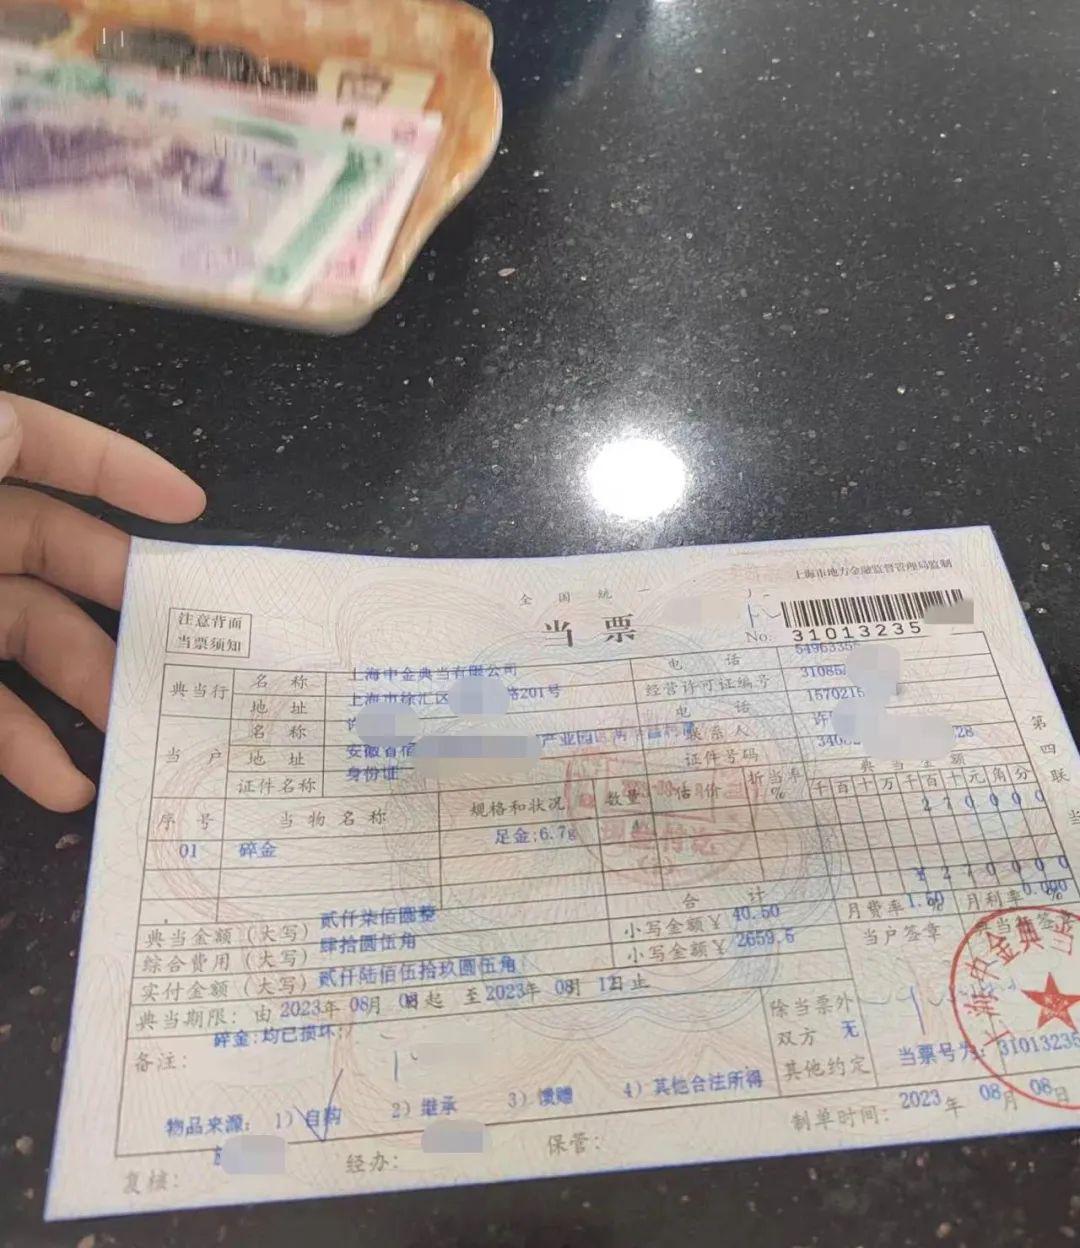 上海市地方金融监督管理局监制
全国统一
当票
注意背面
当票须知
No: 31013235
典当行 名称 上海申金典当有限公司 电话 5496335
地址 上海市徐汇区 路201号 经营许可证编号 3108
当户 名称 许 电话 1570215
地址 安徽省宿 产业园 联系人 许
证件名称 身份证 证件号码 340 28
序号 当物名称 规格和状况 数量 估价 折当率% 典当金额
千百十万千百十元角分
01 碎金 足金;6.7g 270000
合计 ¥270000
典当金额(大写) 贰仟柒佰圆整
综合费用(大写) 肆拾圆伍角 小写金额¥ 40.50 月费率1.50% 月利率0.000%
实付金额(大写) 贰仟陆佰伍拾玖圆伍角 小写金额¥ 2659.5 当户签章 典当行签章
典当期限: 由 2023年 08月 08日起 至 2023年 08月 12日止
备注: 碎金:均已损坏;
除当票外
双方 无
其他约定
当票号为: 31013235
物品来源: 1) 自购 2) 继承 3) 馈赠 4) 其他合法所得
复核: 经办: 保管: 制单时间: 2023年 08月 08日
第四联
当
上海申金典当